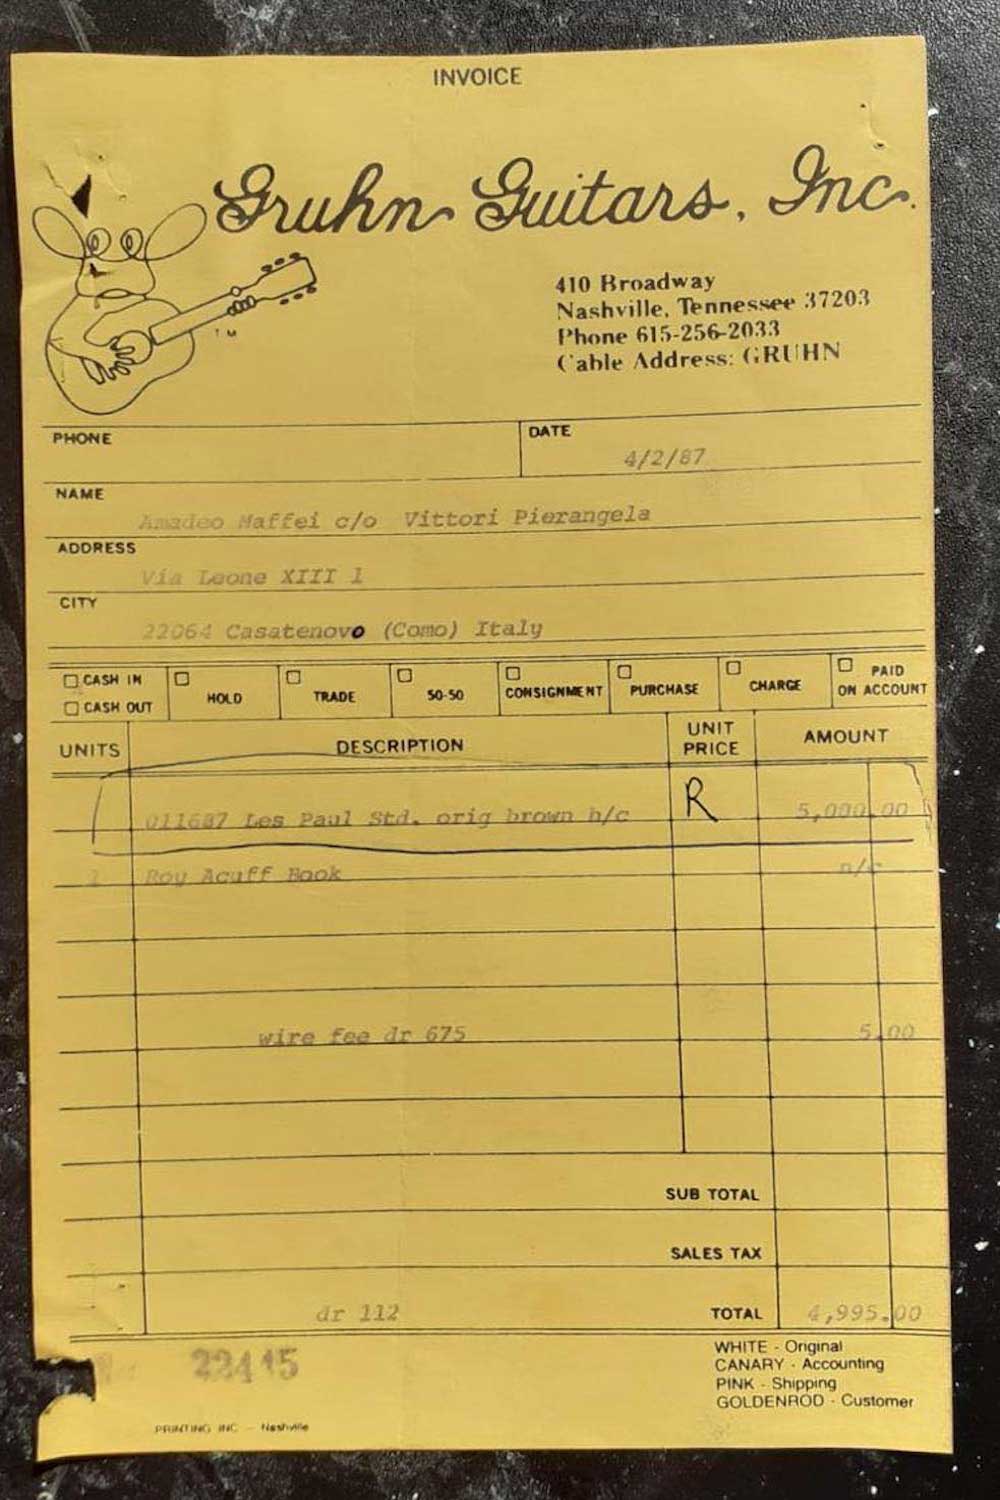 INVOICE
Gruhn Guitars, Inc.
410 Broadway
Nashville, Tennessee 37203
Phone 615-256-2033
Cable Address: GRUHN
TM
PHONE
DATE
4/2/87
NAME
Amadeo Maffei c/o Vittori Pierangela
ADDRESS
Via Leone XIII 1
CITY
22064 Casatenovo (Como) Italy
CASH IN
CASH OUT
HOLD
TRADE
50-50
CONSIGNMENT
PURCHASE
CHARGE
PAID ON ACCOUNT
UNITS DESCRIPTION UNIT PRICE AMOUNT
011687 Les Paul Std. orig brown h/c R 5,000.00
1 Roy Acuff Book n/c
wire fee dr 675 5.00
SUB TOTAL
SALES TAX
dr 112 TOTAL 4,995.00
22415
WHITE - Original
CANARY - Accounting
PINK - Shipping
GOLDENROD - Customer
PRINTING INC - Nashville